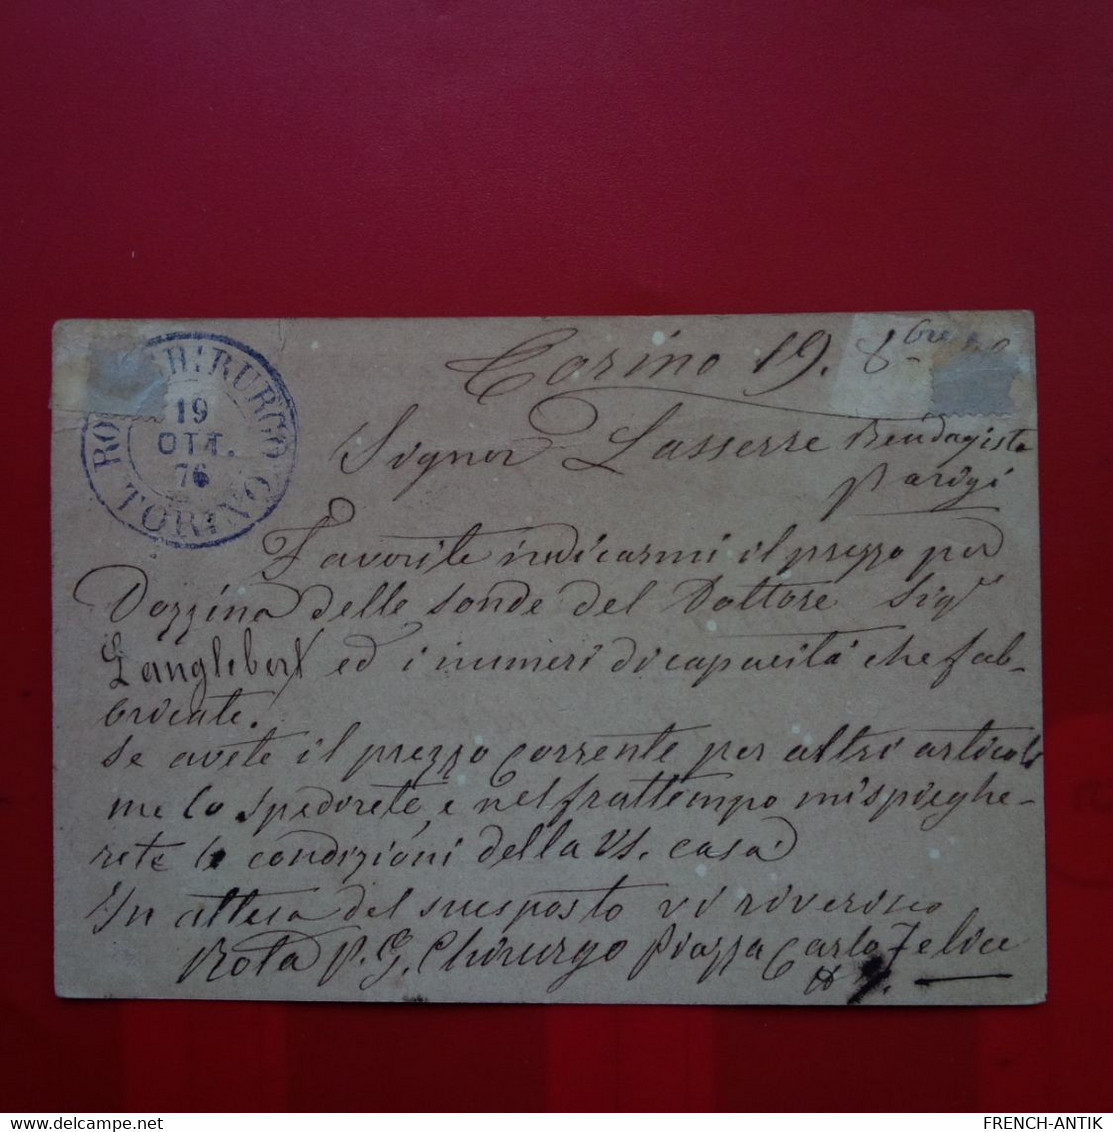 Torino 19. 8bre
19
OTT.
76
TORINO
Signor Lasserre Bendagista
Parigi
Favorite indicarmi il prezzo per
Dozzina delle sonde del Dottore Sigr
Langlebert ed i numeri di capacità che fab-
bricate.
Se avete il prezzo corrente per altri articoli
me lo spedirete, e nel frattempo mi spieghe-
rete le condizioni della Vs. casa
In attesa del suesposto vi riverisco
Rota P. G. Chirurgo Piazza Carlo Felice
FRENCH-ANTIK